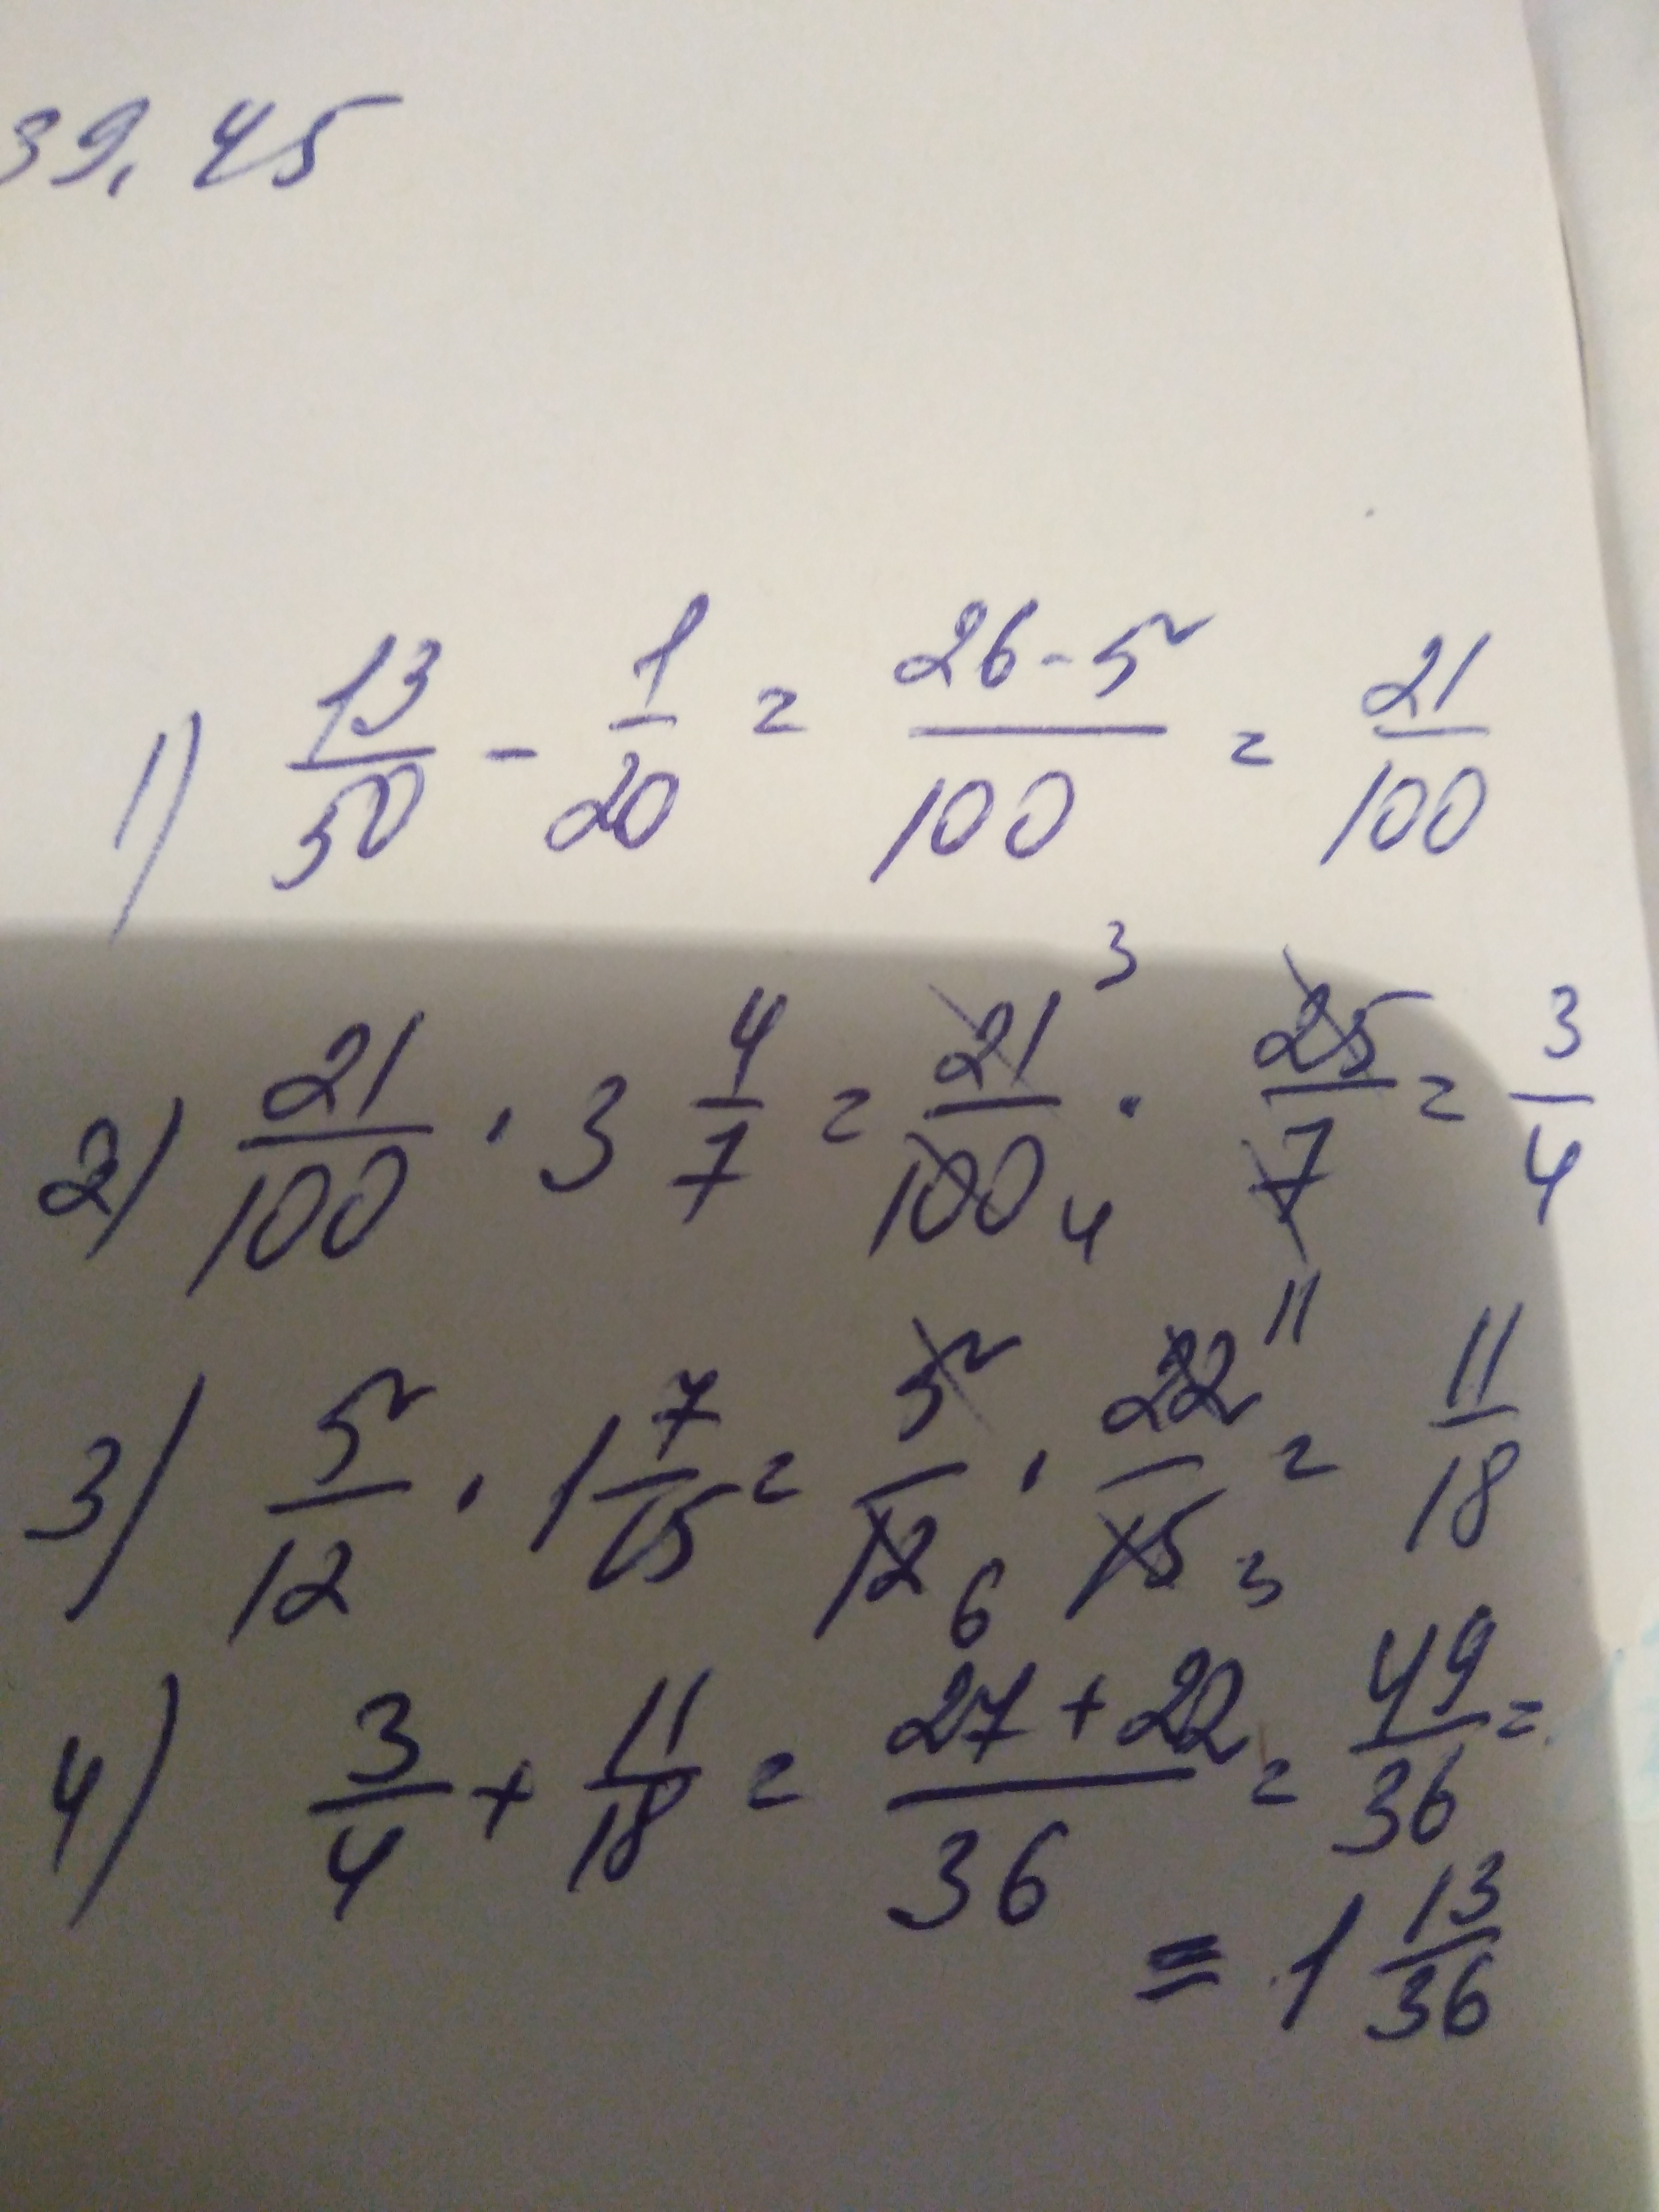 39,45
1) 13/50 - 1/20 = 26-5/100 = 21/100
2) 21/100 · 3 4/7 = 21/100 3 4 · 25/7 = 3/4
3) 5/12 · 1 7/15 = 5/12 6 · 22/15 11 3 = 11/18
4) 3/4 + 11/18 = 27+22/36 = 49/36 =
= 1 13/36